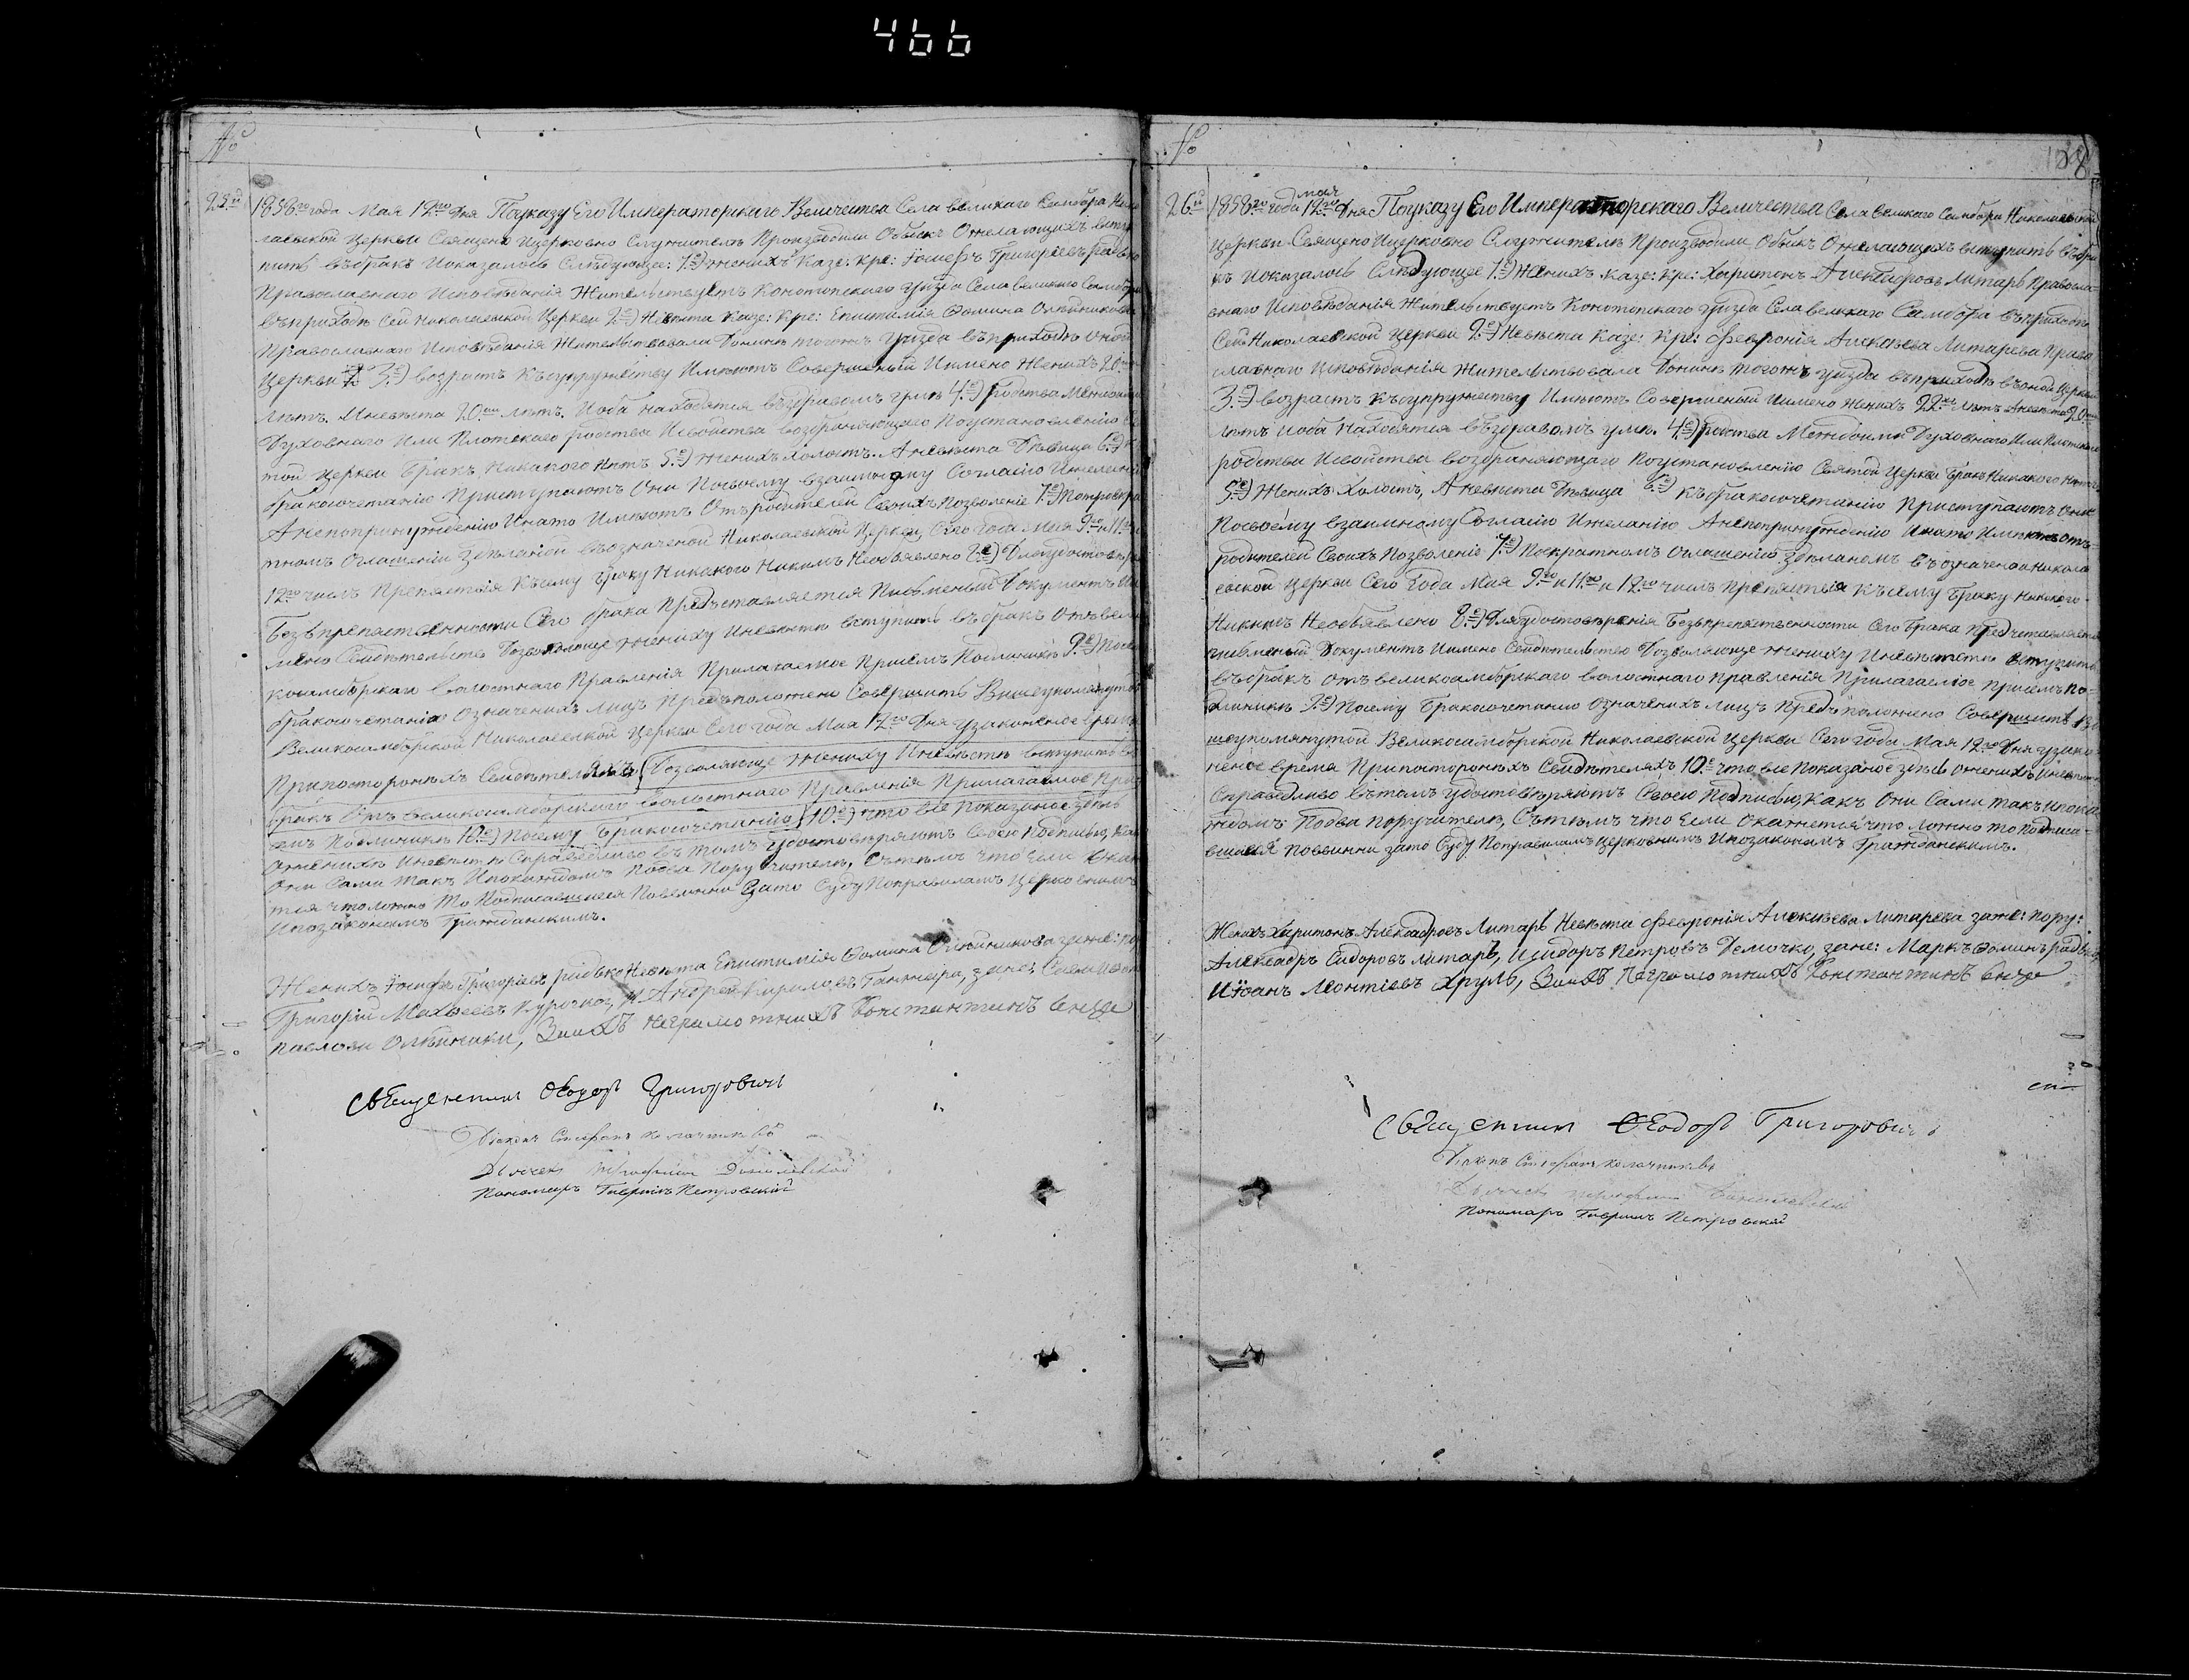 466
№
25й 1858го года Мая 12го Дня Поуказу Его Императорскаго Величества Села великаго Самбора Нико
лаевской Церкви Священо Ицерковно Служителѣ Производили Обыскъ Ожелающихъ всту
пить въбракъ Иоказалось Слѣдующее: 1е) женихъ Казе: кре: Іосифъ Григоріевъ
Православнаго Исповѣданія Жительствуетъ Конотопскаго уѣзда Села великаго Самбора
въприходѣ Сей Николаевской Церкви 2е) Невѣста Казе: Кре: Епистимія Фомина Олѣйникова
Православнаго Исповѣданія Жительствовала Донинѣ тогожъ уѣзда въприходѣ оной
Церкви 3е) возрастъ Късупружеству Имѣютъ Совершеный Имено Женихъ 20
лѣтъ. Аневѣста 20 лѣтъ. Иоба находятся въздравомъ умѣ 4е) родства Междоими
Духовнаго Или Плотскаго родства Исвойства возбраняющаго Поустановленію
той Церкви Бракъ Никакого Нѣтъ 5е) Женихъ Холостъ. Аневѣста Дѣвица 6е)
бракосочетанію Приступаютъ Они Посвоему взаимному Согласію Ижеланію
Анепопринужденію Инато Имѣютъ Отъродителей Своихъ Позволеніе 7е)
тномъ Оглашеніи Здѣланой въозначеной Николаевской Церкви Сего Года Мая 9го и 11го
12го числъ Препятствія Късему браку Никакого Никимъ Необявлено 8е) Дляудостовѣре
Безъпрепятственности Сего брака Представляется Письменый Документъ
мено Свидѣтельство Дозволяюще жениху Иневѣстѣ вступить въбракъ Отъвели
косамборскаго волостнаго Правленія Прилагаемое Присемъ Подлиникѣ 9е) Посему
бракосочетанію Означенихъ лицъ Предъположено Совершить Вишеупомянутой
Великосамборской Николаевской Церкви Сего года Мая 12го Дня узаконеное время
Припосторонихъ Свидѣтеляхъ Дозволяюще жениху Иневѣстѣ вступить въ
бракъ Отъ великосамборскаго волостнаго Правленія Прилагаемое При
семъ Подлиникѣ 10е) Посему бракосочетанію 10е) что все Показаное здѣсь
Ожених Иневѣстѣ Справедливо въ томъ удостовѣряютъ Своею Подписью, Какъ
Они Сами такъ Ипокаждомъ Подва Поручителѣ, Стѣмъ что Если Окаже
тся что ложно то Подписавшиеся Повинни Зато Суду Поправиламъ Церковнимъ
Ипозаконамъ Гражданскимъ.
Женихъ Іосифъ Григоріевъ рідько Невѣста Епистимія Фомина Олѣйникова заже: по
Григорій Матвеевъ Курочка, и Андрей Кириловъ Ганжера, зане:
Павлови Олѣйники, Заихъ неграмотнихъ Константинъ
Священникъ Феодоръ Григорович
Діаконъ Стефанъ
Дьячекъ Трофимъ Данилевской
Пономарь Гавріилъ Петровскій
№
26й 1858го года мая 12го Дня Поуказу Его Императорскаго Величества Села Великаго Самбора Николаевской
Церкви Священо Ицерковно Служителѣ Производили Обыскъ Ожелающихъ вступить въбра
къ Иоказалось Слѣдующее 1е) Женихъ казе: кре: Харитонъ Александровъ Литарь Правосла
внаго Исповѣданія Жительствуетъ Конотопскаго уѣзда Села великаго Самбора въприходѣ
Сей Николаевской Церкви 2е) Невѣста Казе: Кре: Февронія Алексѣева Литарева Право
славнаго Исповѣданія Жительствовала Донинѣ тогожъ уѣзда въприходѣ въоной Церкви
3е) возрастъ Късупружеству Имѣютъ Совершеный Имено Женихъ 22 лѣтъ Аневѣста 20
лѣтъ Иоба Находятся въздравомъ умѣ. 4е) родства Междоими Духовнаго Или Плотскаго
родства Исвойства возбраняющаго Поустановленію Святой Церкви Бракъ Никакого Нѣтъ
5е) Женихъ Холостъ, Аневѣста Дѣвица 6е) Къбракосочетанію Приступаютъ Они
Посвоему взаимному Согласію Ижеланію Анепопринужденію Инато Имѣютъ отъ
родителей Своихъ Позволеніе 7е) Потрикратномъ Оглашенію Здѣланомъ въозначеной никола
евской Церкви Сего Года Мая 9го и 11го и 12го числъ Препятствія Късему браку Никакого
Никимъ Необявлено 8е) Дляудостовѣренія Безъпрепятственности Сего Брака Представляется
писменый Документъ Имено Свидѣтельство Дозволяюще жениху Иневѣстѣ вступить
въбракъ отъвеликосамборскаго волостнаго правленія Прилагаемое Присемъ по
длиникѣ 9е) Посему Бракосочетанію Означенихъ лицъ Предъположено Совершить Ви
шеупомянутой Великосамборской Николаевской Церкви Сего года Мая 12го Дня узако
неное время Припосторонихъ Свидѣтеляхъ 10е что все Показаное здѣсь ожених Иневѣстѣ
Справедливо вътомъ удостовѣряютъ Своею Подписью, Какъ Они Сами такъ Ипока
ждомъ Подва поручителѣ, Сътѣмъ что Если Окажется что ложно то Подписа
вшиеся повинни зато Суду Поправиламъ церковнимъ Ипозаконамъ Гражданскимъ.
Женихъ Харитонъ Александровъ Литарь Невѣста Февронія Алексѣева Литарева заже: пору:
Александръ Сидоровъ литарь, Исидоръ Петровъ Демочко, зане: Маркъ Фоминъ
Иоанъ Леонтіевъ Хруль, Заихъ Неграмотнихъ Константинъ
Священникъ Феодоръ Григорович
Діаконъ Стефанъ
Дьячекъ Трофимъ Данилевской
Пономарь Гавріилъ Петровскій